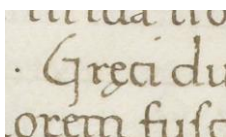 · Gręci du
orem fuſc